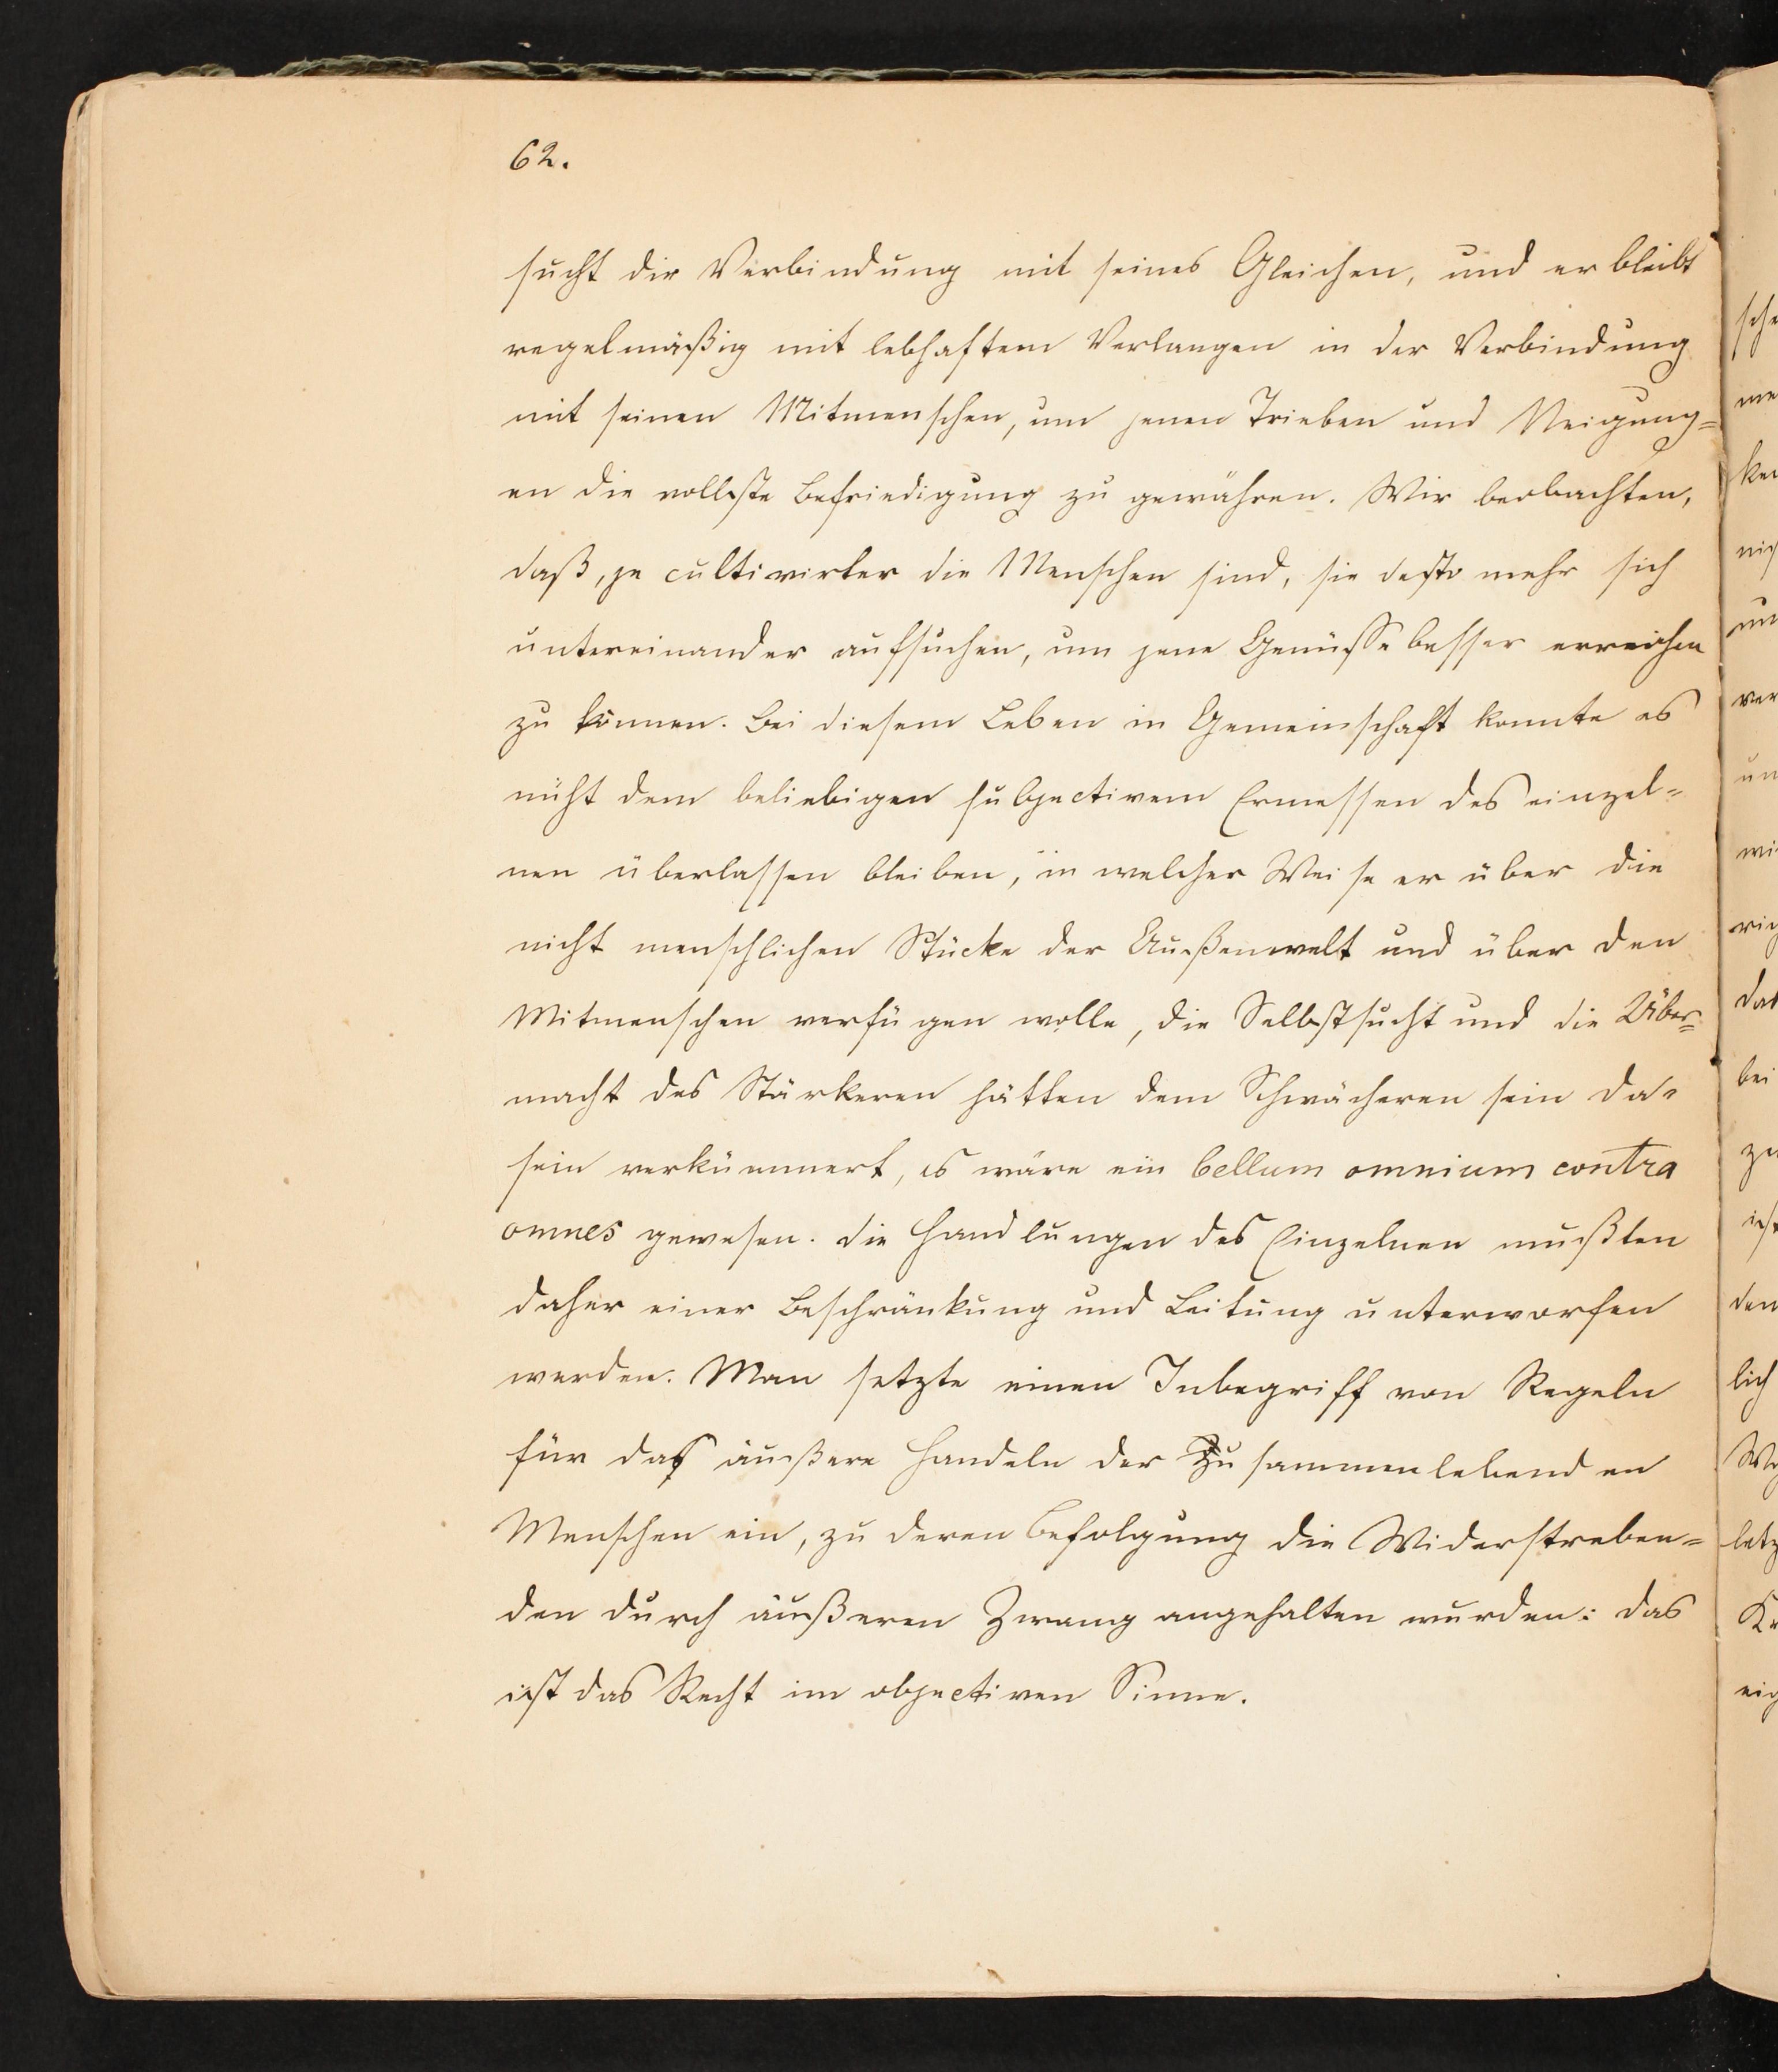 62.
sucht die Verbindung mit seines Gleichen, und er bleibt
regelmäßig mit lebhaftem Verlangen in der Verbindung
mit seinen Mitmenschen, um jenen Trieben und Neigung=
en die vollste Befriedigung zu gewähren. Wir beobachten,
daß, je cultivirter die Menschen sind, sie desto mehr sich
untereinander aufsuchen, um jene Genüsse besser erreichen
zu können. Bei diesem Leben in Gemeinschaft konnte es
nicht dem beliebigen subjectivem Ermessen des einzel=
nen überlassen bleiben, in welcher Weise er über die
nicht menschlichen Stücke der Außenwelt und über den
Mitmenschen verfügen wolle, die Selbstsucht und die Über=
macht des Stärkeren hätten dem Schwächeren sein Da=
sein verkümmert, es wäre ein bellum omnium contra
omnes gewesen. Die Handlungen des Einzelnen mußten
daher einer Beschränkung und Leitung unterworfen
werden. Man setzte einen Inbegriff von Regeln
für das äußere Handeln der Zusammenlebenden
Menschen ein, zu deren Befolgung die Widerstreben=
den durch äußeren Zwang angehalten wurden: das
ist das Recht im objectiven Sinne.